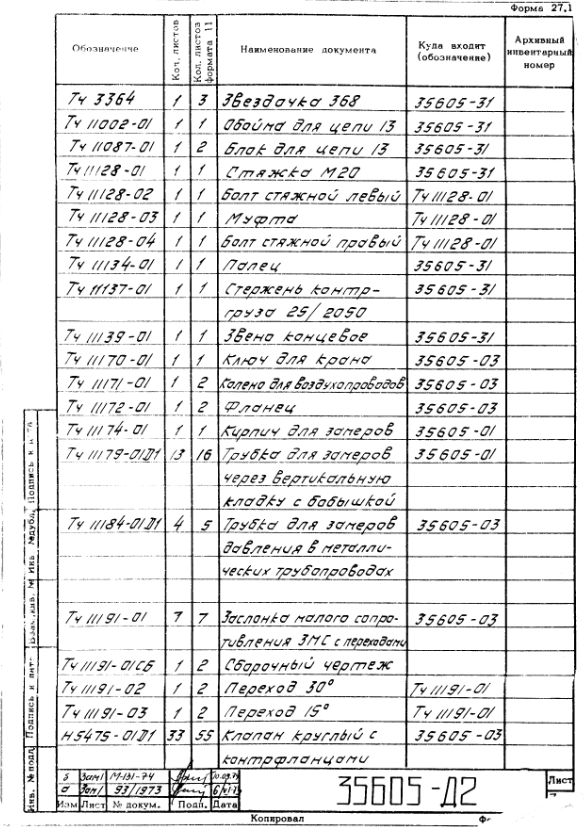 Форма 27,1
Обозначение Кол. листов Кол. листов формата 11 Наименование документа Куда входит (обозначение) Архивный инвентарный номер
Тч 3364 1 3 Звездочка 368 35605-31
Тч 11002-01 1 1 Обойма для цепи 13 35605-31
Тч 11087-01 1 2 Блок для цепи 13 35605-31
Тч 11128-01 1 1 Стяжка М20 35605-31
Тч 11128-02 1 1 Болт стяжной левый Тч 11128-01
Тч 11128-03 1 1 Муфта Тч 11128-01
Тч 11128-04 1 1 Болт стяжной правый Тч 11128-01
Тч 11134-01 1 1 Палец 35605-31
Тч 11137-01 1 1 Стержень контр- 35605-31
груза 25/2050
Тч 11139-01 1 1 Звено концевое 35605-31
Тч 11170-01 1 1 Ключ для крана 35605-03
Тч 11171-01 1 2 Колено для воздухопроводов 35605-03
Тч 11172-01 1 2 Фланец 35605-03
Тч 11174-01 1 1 Кирпич для замеров 35605-01
Тч 11179-01Д1 13 16 Трубка для замеров 35605-01
через вертикальную
кладку с бобышкой
Тч 11184-01Д1 4 5 Трубка для замеров 35605-03
давления в металли-
ческих трубопроводах
Тч 11191-01 7 7 Заслонка малого сопро- 35605-03
тивления ЗМС с переходами
Тч 11191-01СБ 1 2 Сборочный чертеж
Тч 11191-02 1 2 Переход 30° Тч 11191-01
Тч 11191-03 1 2 Переход 15° Тч 11191-01
Н5475-01Д1 33 55 Клапан круглый с 35605-03
контрфланцами
Инв. № подл. Подпись и дат. Взам. инв. № Инв. № дубл. Подпись и
б Зам1 М-131-74
а Зам1 93/1973
Изм Лист № докум. Подп. Дата
35605-Д2
Лист
Копировал